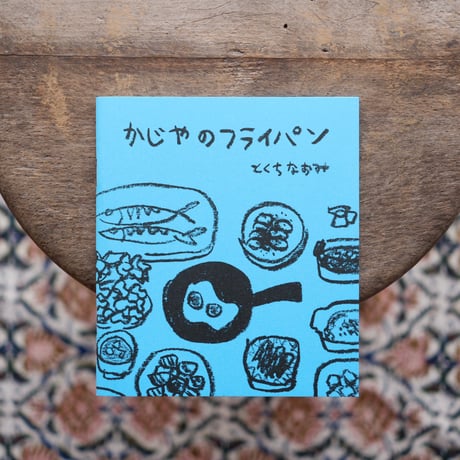 かじやのフライパン
とくちなおみ